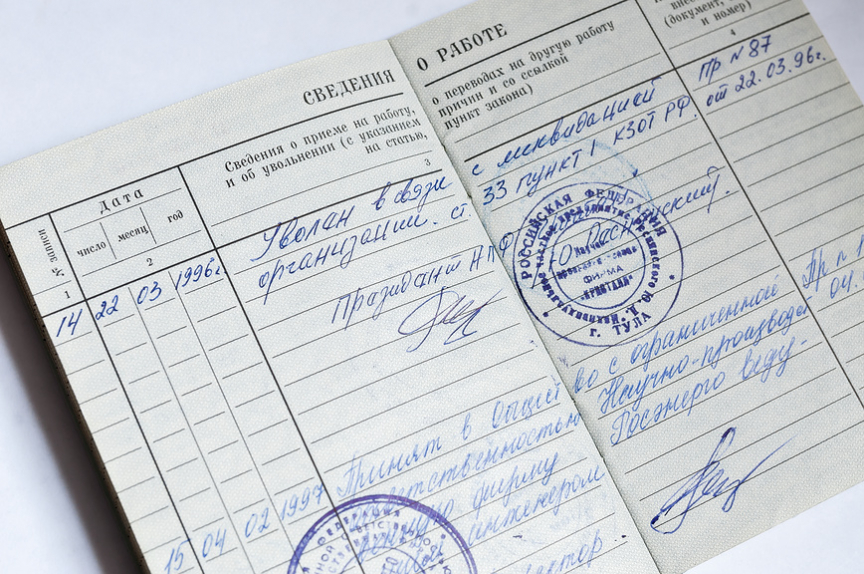 СВЕДЕНИЯ О РАБОТЕ
№ записи
Дата
число
месяц
год
Сведения о приеме на работу, о переводах на другую работу
и об увольнении (с указанием причин и со ссылкой
на статью, пункт закона)
(документ,
и номер)
1
2
3
4
14 22 03 1996г. Уволен в связи с ликвидацией Пр N 87
организации. ст. 33 пункт 1 КЗОТ РФ. от 22.03.96г.
Президент НПФ
РОССИЙСКАЯ ФЕДЕРАЦИЯ
ФИРМА
г. ТУЛА
15 04 02 1997 Принят в Общество с ограниченной Пр
ответственностью Научно-производ 04.
фирму Росэнерго веду-
инженером